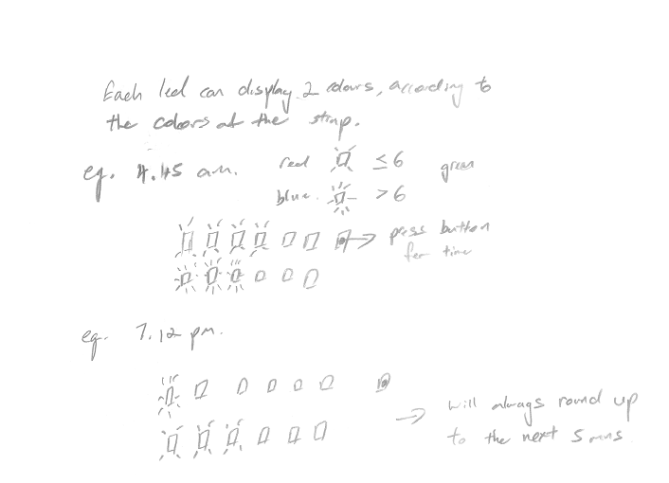 Each led can display 2 colours, according to
the colors of the strap.
eg. 4.45 am. red ≤6 green
blue. >6
press button
for time
eg. 7.12 pm.
will always round up
to the next 5 mns.